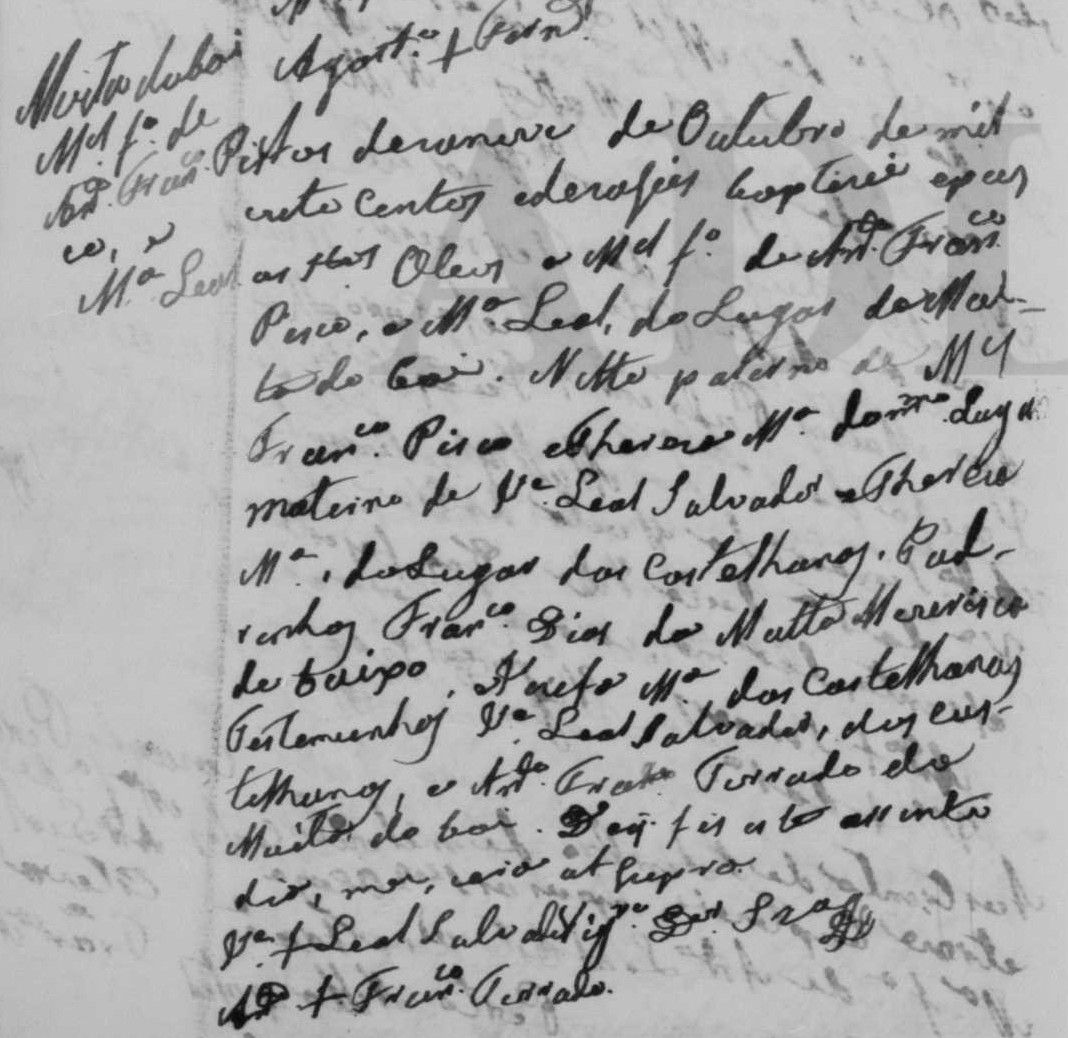 Agost.º + Fern.
Marta do boi
M.el f.º de
Ant.º Fran.
co, e
M.ª Leal
Aos dezanove de Outubro de mil
e sete centos e dezaseis baptizei e pus
os s.tos Oleos a M.el f.º de Ant.º Fran.co
Pisco, e M.ª Leal, do Lugar da Mat-
ta do boi. Netto paterno de M.el
Fran.co Pisco e Thereza M.ª do m.mo Lugar
materno de V.e Leal Salvador e Thereza
M.ª, do Lugar dos Castelhanos. Pad-
rinhos Fran.co Dias da Matta Mourisca
de baixo, Josefa M.ª dos Castelhanos
Testemunhas V.e Leal Salvador, dos Cas-
telhanos, e Ant.º Fran.co Ferrado da
Matta do boi. De q. fis este assento
dia, mes, era ut supra.
V.e + Leal Salvador
Ant.º + Fran.co Ferrado.
ADL